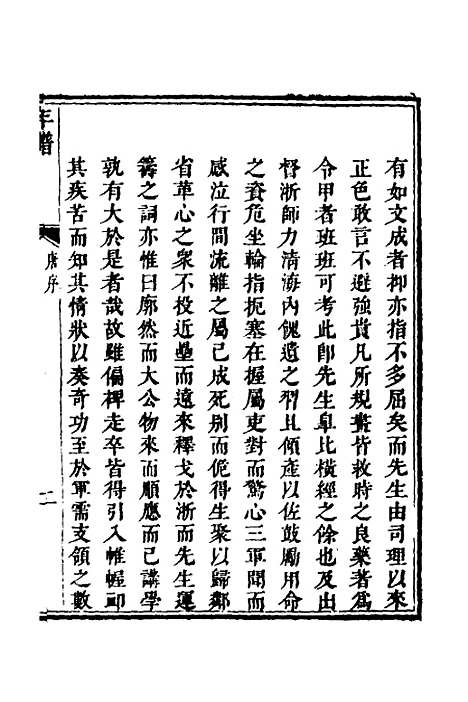 有如文成者抑亦指不多屈矣而先生由司理以來
正色敢言不避強貴凡所規畫皆救時之良藥著爲
令甲者班班可考此卽先生臯比橫經之餘也及出
督浙師力淸海內餽遺之習且傾產以佐鼓勵用命
之賚危坐輪指扼塞在握屬吏對而驚心三軍聞而
感泣行間流離之屬已成死别而俛得生聚以歸鄰
省革心之衆不投近壘而遠來釋戈於浙而先生運
籌之詞亦惟曰廓然而大公物來而順應而已講學
孰有大於是者哉故雖偏裨走卒皆得引入帷幄卽
其疾苦而知其情狀以奏奇功至於軍需支領之數
年譜
唐序
二